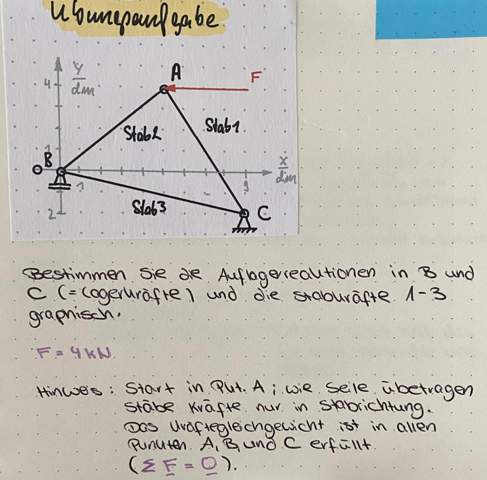 Übungsaufgabe
y/dm
A
F
4
Stab2
Stab1
1
B
0
1
x/dm
2
Stab3
C
Bestimmen Sie die Auflagerreaktionen in B und
C (=Lagerkräfte) und die Stabkräfte 1-3
graphisch.
F = 4 kN
Hinweis: Start in Pkt. A; wie Seile übetragen
Stäbe Kräfte nur in Stabrichtung.
Das Kräftegleichgewicht ist in allen
Punkten A, B, und C erfüllt
(Σ F = 0).